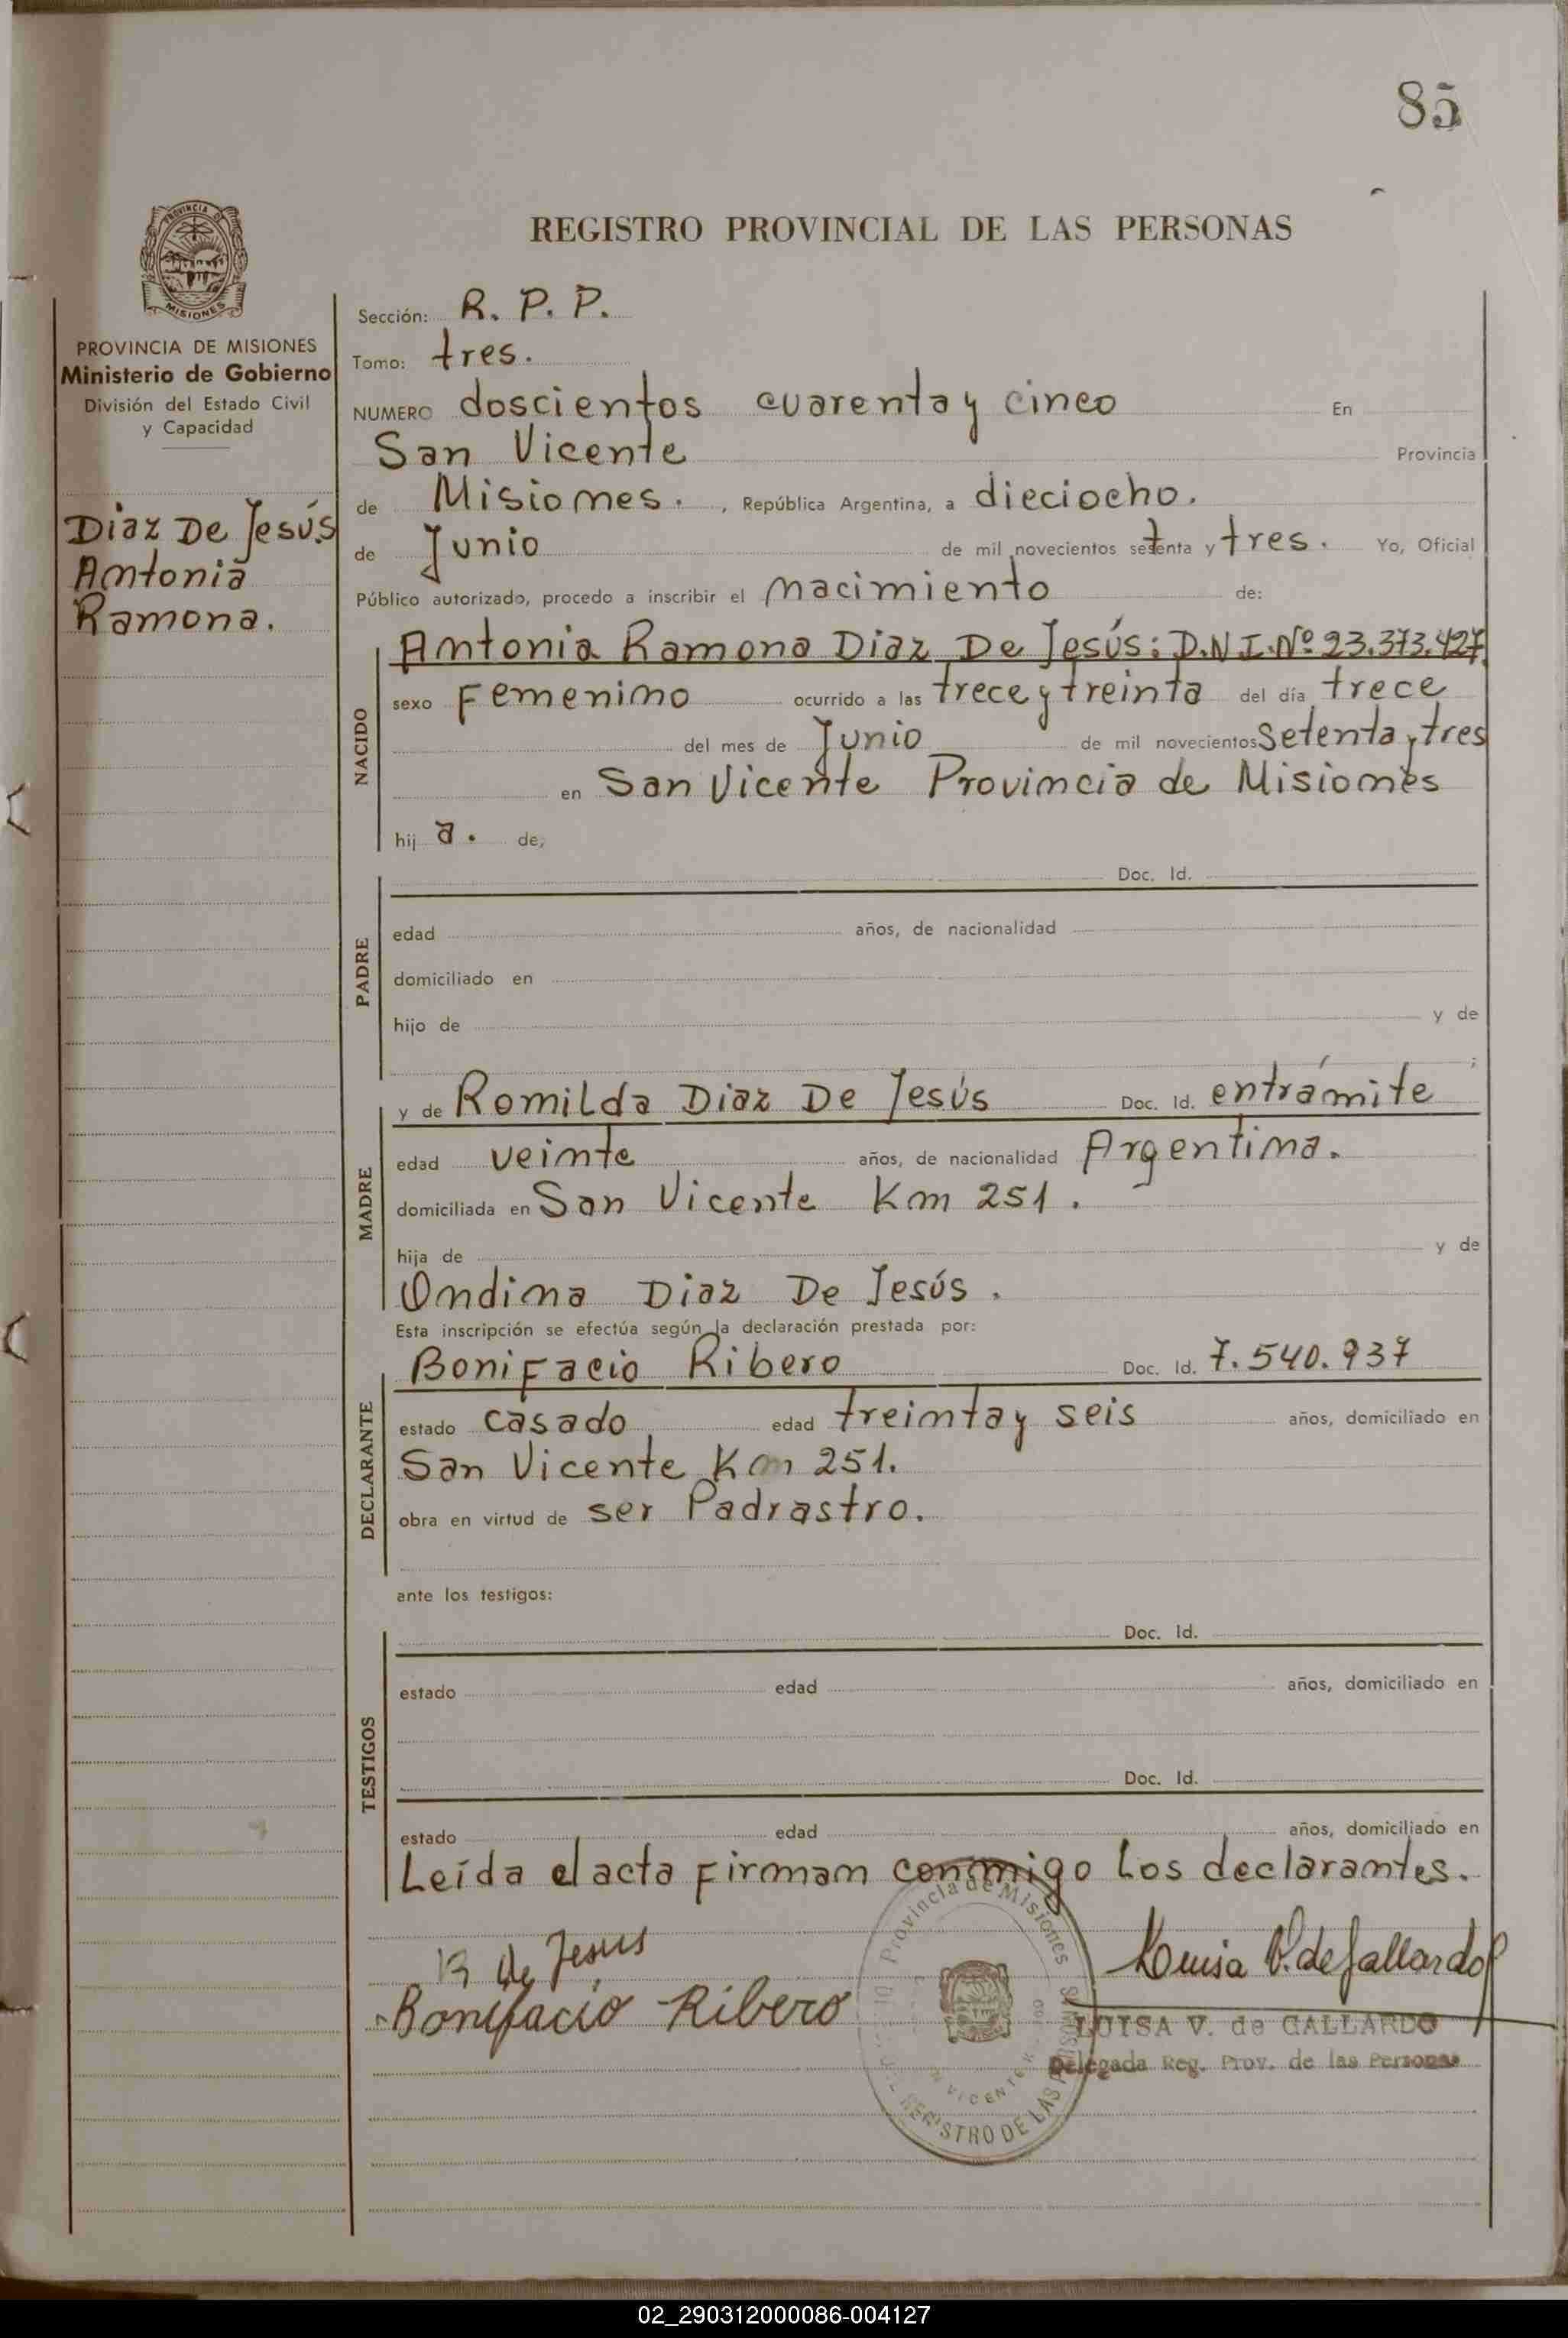 85
REGISTRO PROVINCIAL DE LAS PERSONAS
PROVINCIA DE
MISIONES
PROVINCIA DE MISIONES
Ministerio de Gobierno
División del Estado Civil
y Capacidad
Diaz De Jesús
Antonia
Ramona.
Sección: R. P. P.
Tomo: tres.
NUMERO doscientos cuarenta y cinco En
San Vicente Provincia
de Misiones. , República Argentina, a dieciocho.
de Junio de mil novecientos setenta y tres. Yo, Oficial
Público autorizado, procedo a inscribir el nacimiento de:
NACIDO
Antonia Ramona Diaz De Jesús: D.N.I. Nº 23.373.427
sexo Femenino ocurrido a las trece y treinta del día trece
del mes de Junio de mil novecientos Setenta y tres
en San Vicente Provincia de Misiones
hij a. de,
PADRE
Doc. Id.
edad años, de nacionalidad
domiciliado en
hijo de y de
;
MADRE
y de Romilda Diaz De Jesús Doc. Id. entrámite
edad veinte años, de nacionalidad Argentina.
domiciliada en San Vicente Km 251.
hija de y de
Ondina Diaz De Jesús.
Esta inscripción se efectúa según la declaración prestada por:
DECLARANTE
Bonifacio Ribero Doc. Id. 7.540.937
estado casado edad treinta y seis años, domiciliado en
San Vicente Km 251.
obra en virtud de ser Padrastro.
ante los testigos:
TESTIGOS
Doc. Id.
estado edad años, domiciliado en
Doc. Id.
estado edad años, domiciliado en
Leída el acta Firman conmigo los declarantes.
R De Jesus
Bonifacio Ribero
Provincia de Misiones
REGISTRO DE LAS PERSONAS
VICENTE
Luisa V. de Gallardo
LUISA V. de GALLARDO
Delegada Reg. Prov. de las Personas
02_290312000086-004127